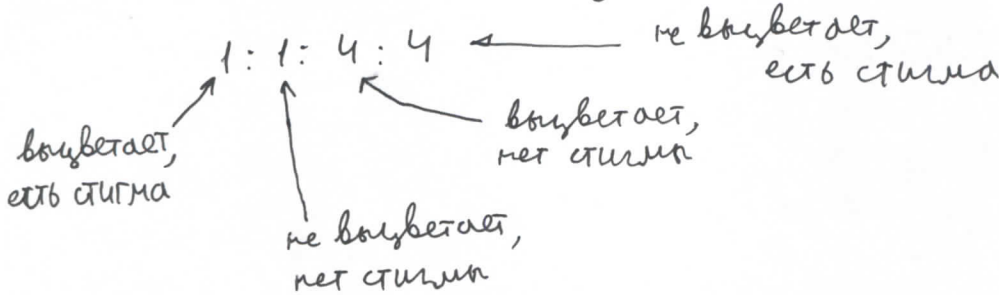 1 : 1 : 4 : 4
не выцветает,
есть стигма
выцветает,
нет стигмы
выцветает,
есть стигма
не выцветает,
нет стигмы